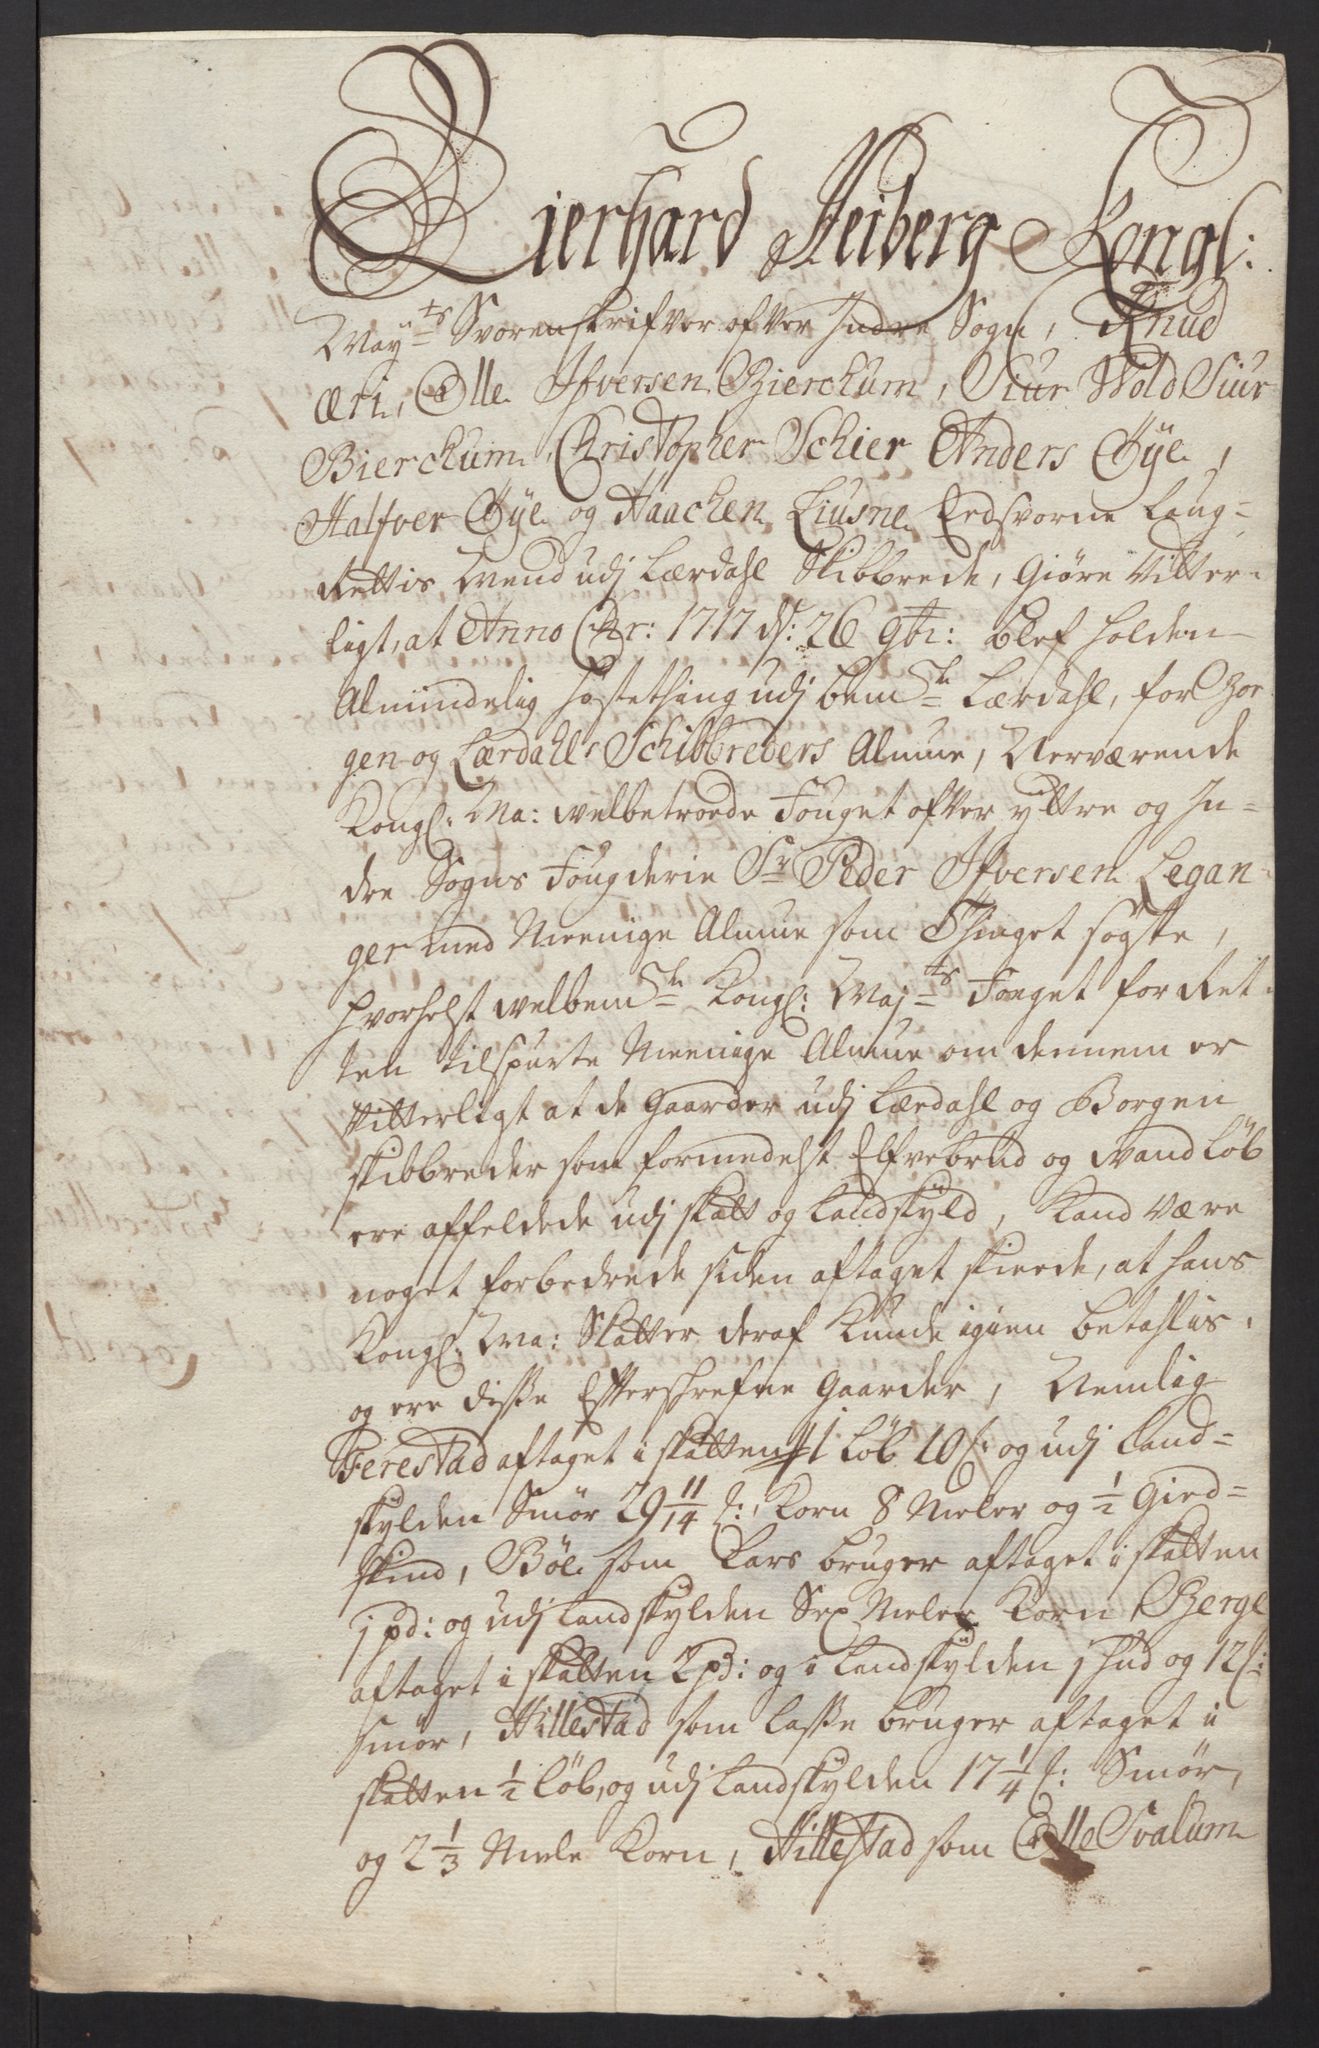 Gierhard Heiberg Kongl:
Mayts Svorenskrifver ofver Indre Sogn, Knud
Æri, Olle Ifversen Bierckum, Siur Wold Siur
Bierckum, Christopher Schier Anders Øye,
Halfver Øye og Haachen Liusne Eedsvorne Laug-
Rettis Mend udj Lærdahl Skibbrede, Giøre Vitter-
ligt, at Anno Chr: 1717 d: 26 9br: blef holden
Almindelig høstething udj bemte Lærdahl, for Bor-
gen og Lærdahls Schibbreders Almue, Nerværende
Kongl: Ma: velbetroede Fouget ofver yttre og In-
dre Sogns Fougderie Sr Peder Ifversen Legan-
ger med Meenige Almue som Thinget søgte,
hvorhelst velbemte Kongl: Majts Foeget for Ret-
ten tilspurte Meenige Almue om dennem er
Vitterligt at de Gaarder udj Lærdahl og Borgen
skibbreder som formedelst Elfvebrud og Vandløb
ere affeldede udj skatt og Landskyld, Kand være
noget forbedrede siden aftaget skeede, at hans
Kongl: Ma: Skatter deraf Kunde igien betahlis,
og ere disse Efterschrefne Gaarder, Nemlig
Ferestad aftaget i skatten 1 Løb 10 : og udj Land-
skylden Smør 29 11/14 :, Korn 8 Meler og 1/2 Gied-
skind, Bøe som Lars bruger aftaget i skatten
j pd: og udj Landskylden Sex Meler Korn Berge
aftaget i skatten 2 pd: og i Landskylden j Hud og 12 :
Smør, Hillestad som Lasse bruger aftaget i
skatten 1/2 Løb, og udj Landskylden 17 1/4 : Smør,
og 2 1/3 Mele Korn, Hillestad som Olle Svalum